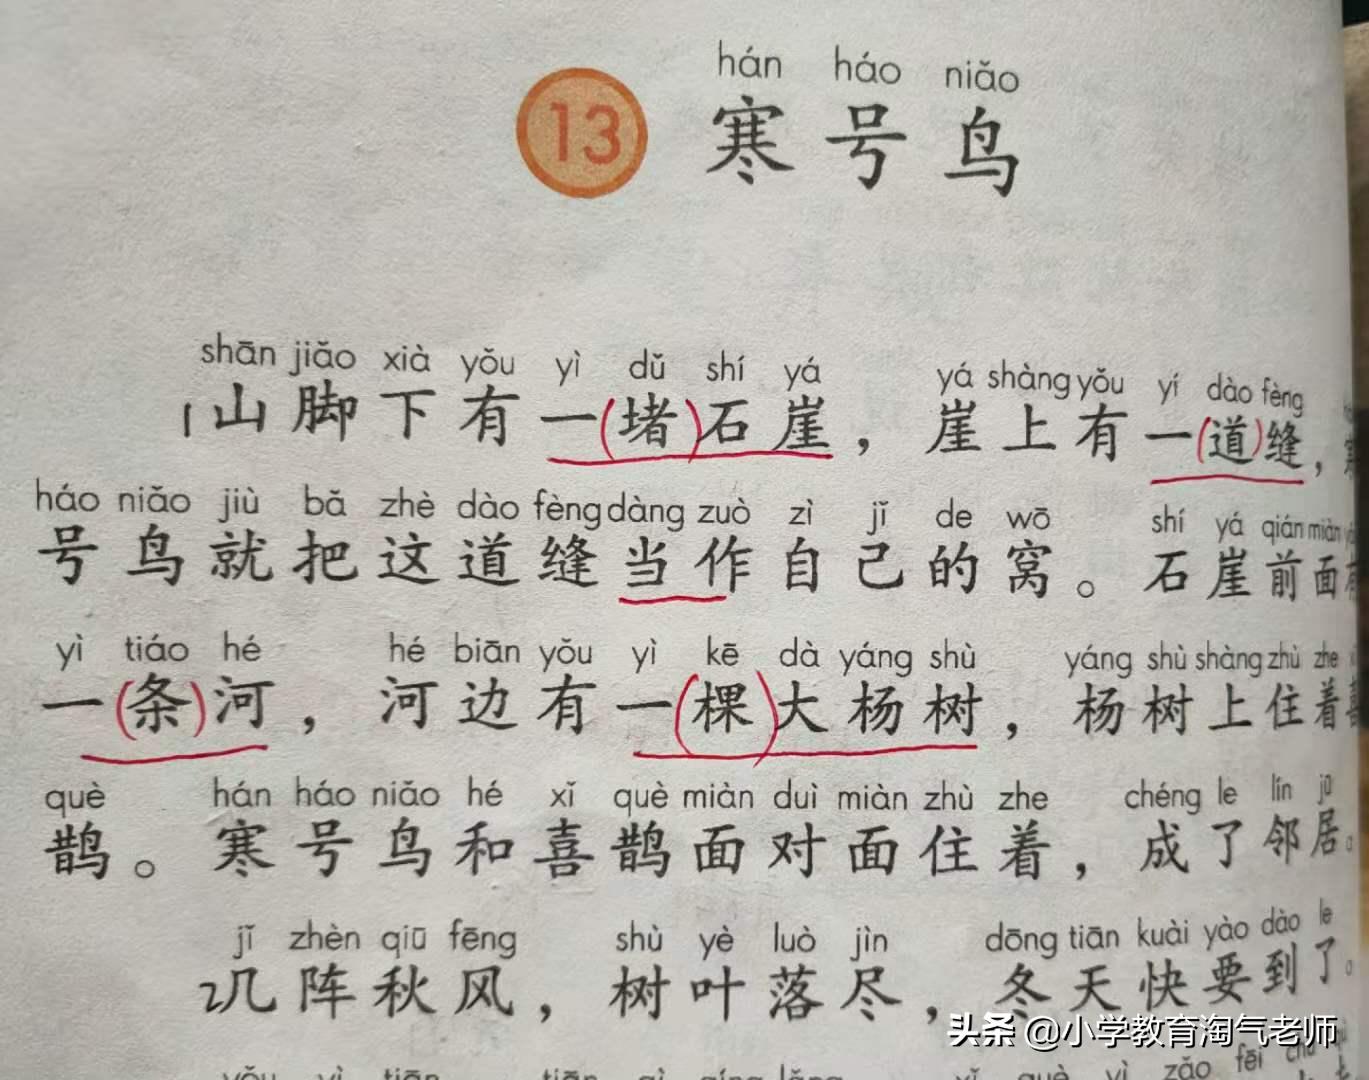 hán háo niǎo
13 寒号鸟
shān jiǎo xià yǒu yì dǔ shí yá yá shàng yǒu yí dào fèng
1山脚下有一(堵)石崖，崖上有一(道)缝，
háo niǎo jiù bǎ zhè dào fèng dàng zuò zì jǐ de wō shí yá qián miàn
号鸟就把这道缝当作自己的窝。石崖前面
yì tiáo hé hé biān yǒu yì kē dà yáng shù yáng shù shàng zhù zhe
一(条)河，河边有一(棵)大杨树，杨树上住着
què hán háo niǎo hé xǐ què miàn duì miàn zhù zhe chéng le lín jū
鹊。寒号鸟和喜鹊面对面住着，成了邻居。
jǐ zhèn qiū fēng shù yè luò jìn dōng tiān kuài yào dào le
2几阵秋风，树叶落尽，冬天快要到了。
头条 @小学教育淘气老师